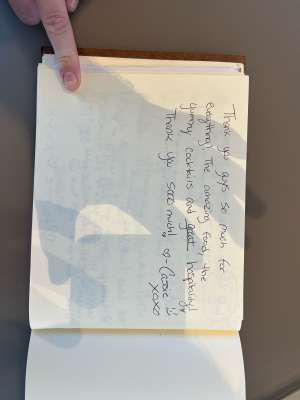 Thank you guys so much for
everything! The amazing food, the
yummy cocktails and great hospitality!
Thank you sooo much!! ♡ - Cassie :)
xoxo